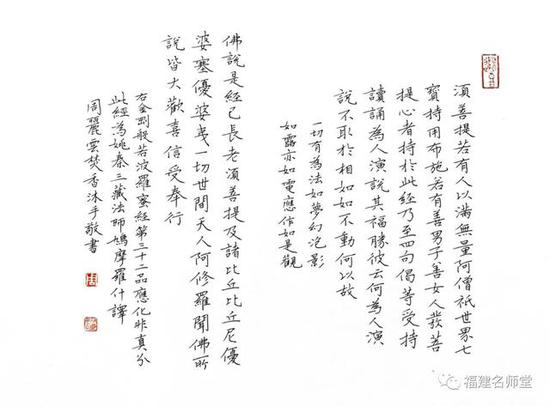 須菩提若有人以滿無量阿僧祇世界七
寶持用布施若有善男子善女人發菩
提心者持於此經乃至四句偈等受持
讀誦為人演說其福勝彼云何為人演
說不取於相如如不動何以故
一切有為法如夢幻泡影
如露亦如電應作如是觀
佛說是經已長老須菩提及諸比丘比丘尼優
婆塞優婆夷一切世間天人阿修羅聞佛所
說皆大歡喜信受奉行
右金剛般若波羅蜜經第三十二品應化非真分
此經為姚秦三藏法師鳩摩羅什譯
周麗雲焚香沐手敬書
福建名师堂